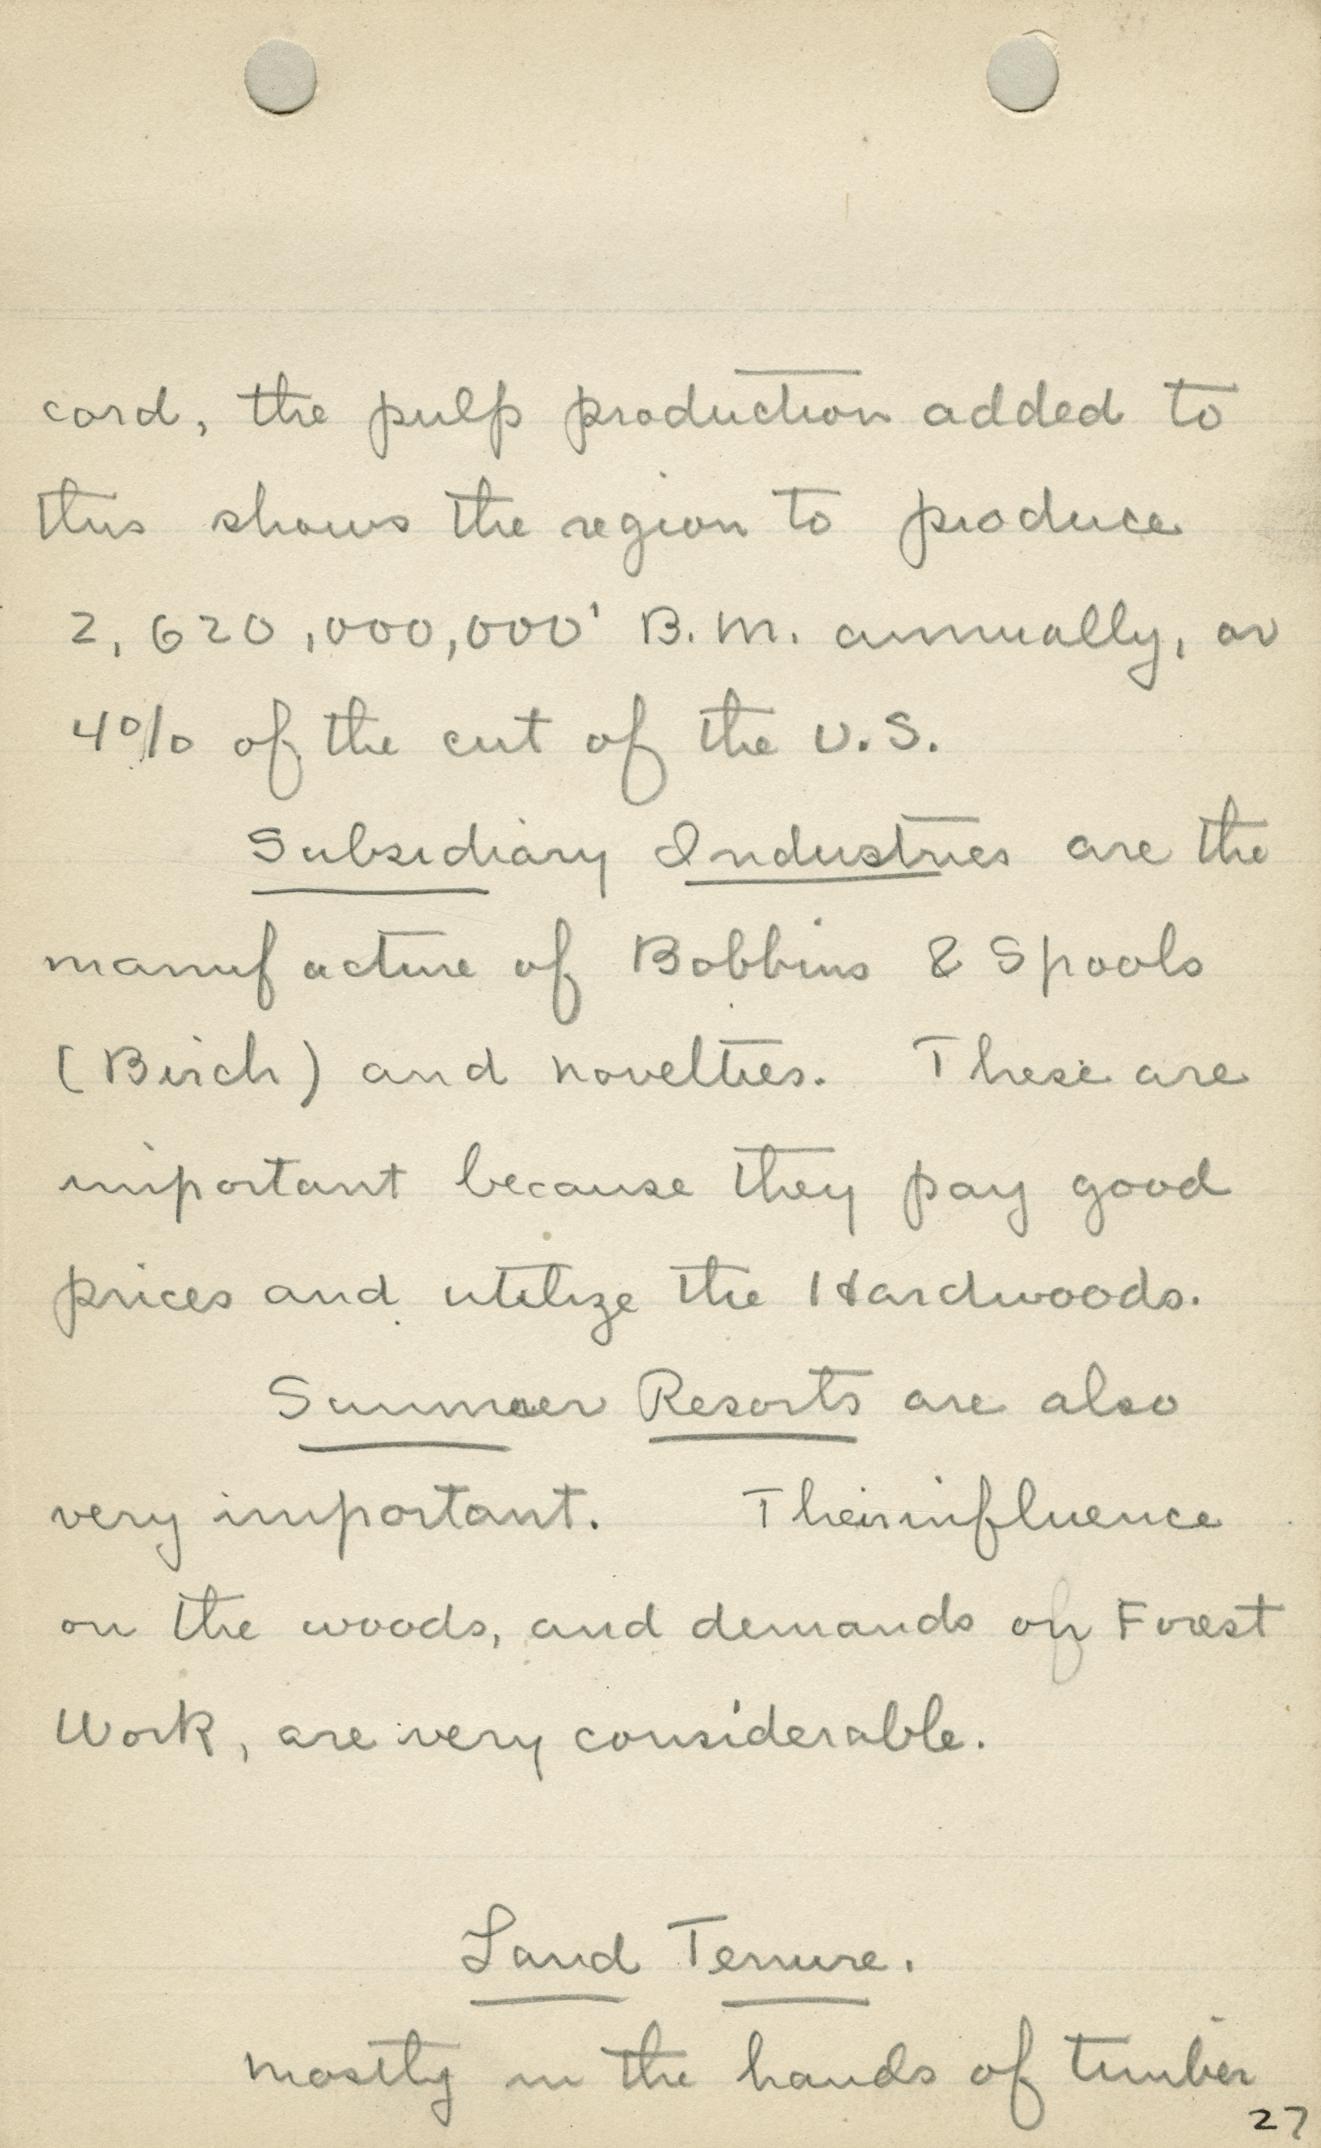 cord, the pulp production added to
this shows the region to produce
2,620,000,000' B.M. annually, or
4% of the cut of the U.S.
Subsidiary Industries are the
manufacture of Bobbins & Spools
(Birch) and novelties. These are
important because they pay good
prices and utilize the Hardwoods.
Summer Resorts are also
very important. Their influence
on the woods, and demands on Forest
Work, are very considerable.
Land Tenure.
mostly in the hands of timber
27